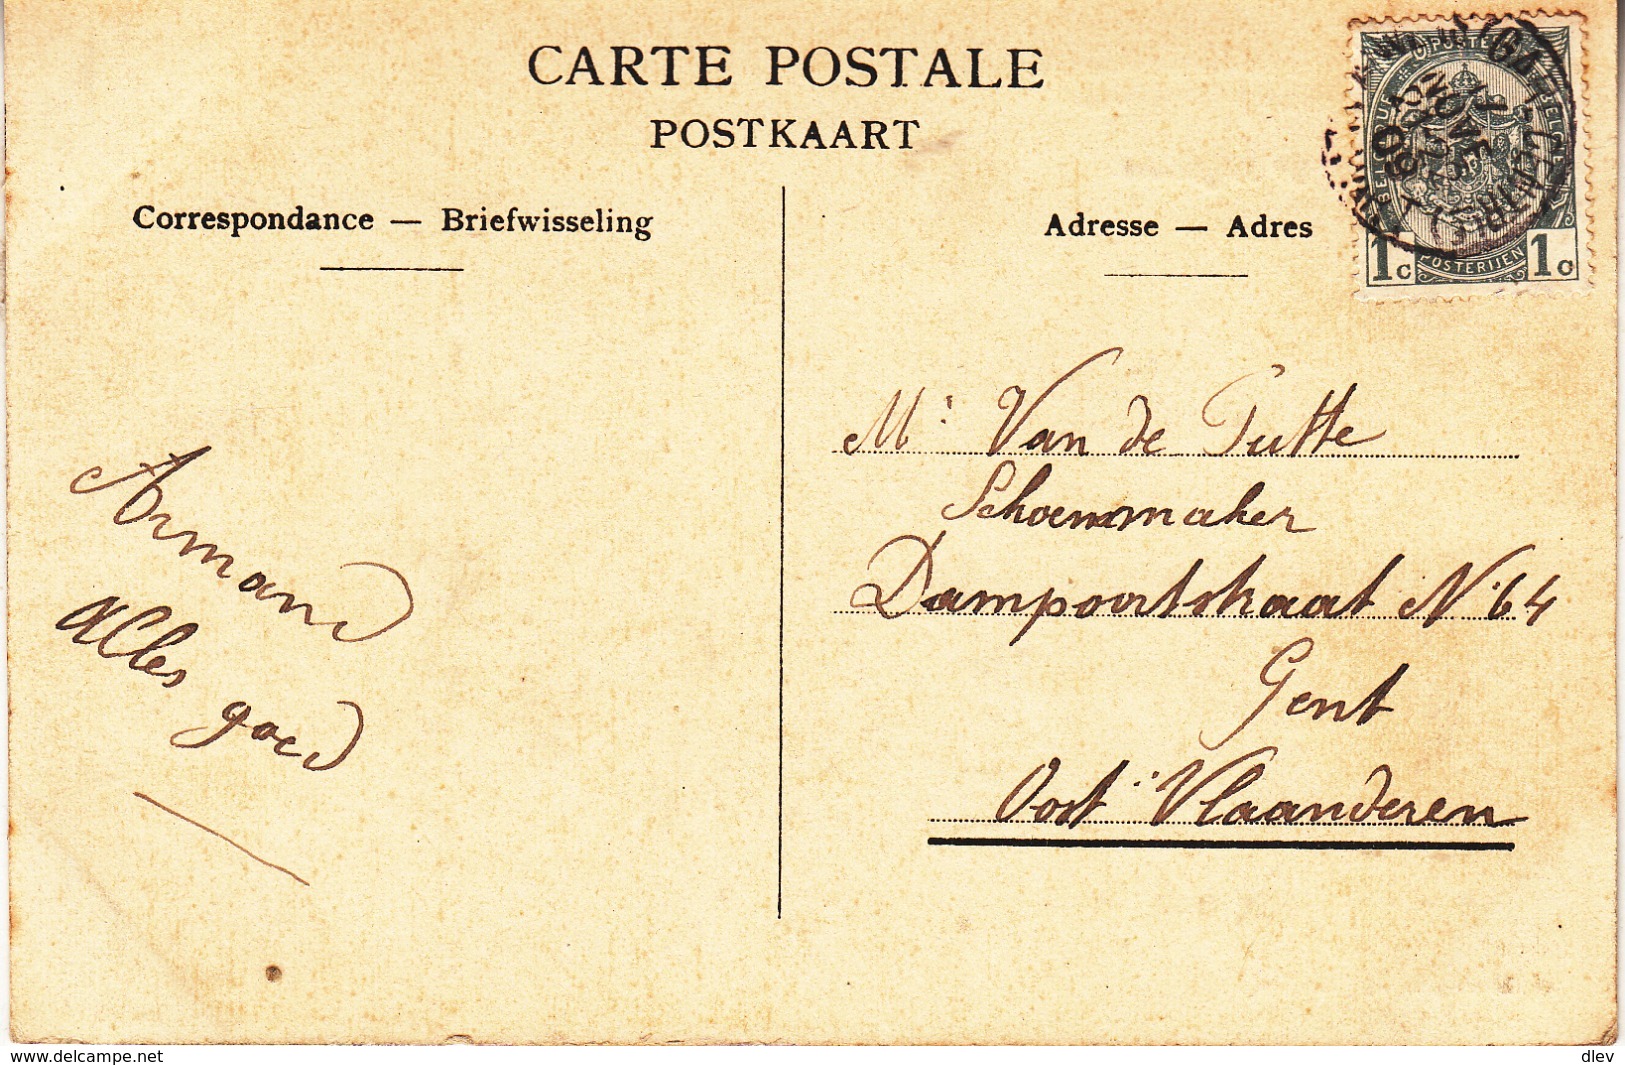 CARTE POSTALE
POSTKAART
Correspondance — Briefwisseling
Adresse — Adres
POSTERIJEN
1c 1c
09
Armand
Alles goed
Mr. Van de Putte
Schoenmaker
Dampoortstraat N. 64
Gent
Oost Vlaanderen
www.delcampe.net
dlev